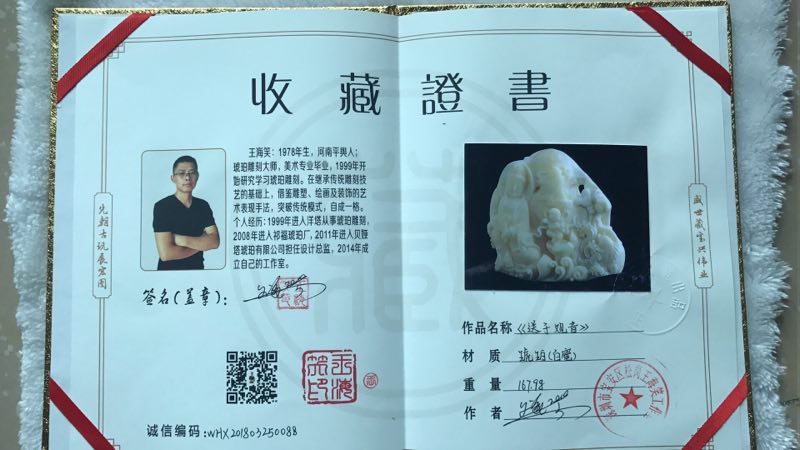 收藏證書
王海笑：1978年生，河南平舆人；
琥珀雕刻大师，美术专业毕业，1999年开
始研究学习琥珀雕刻。在继承传统雕刻技
艺的基础上，借鉴雕塑、绘画及装饰的艺
术表现手法，突破传统模式，自成一格。
个人经历：1999年进入洋塔从事琥珀雕刻，
2008年进入祁福琥珀厂，2011年进入贝娅
塔琥珀有限公司担任设计总监，2014年成
立自己的工作室。
签名(盖章)：
诚信编码：WHX201803250088
先朝古玩展宏图
盛世藏宝兴伟业
作品名称 《送子观音》
材 质 琥珀(白蜜)
重 量 167.9g
作 者